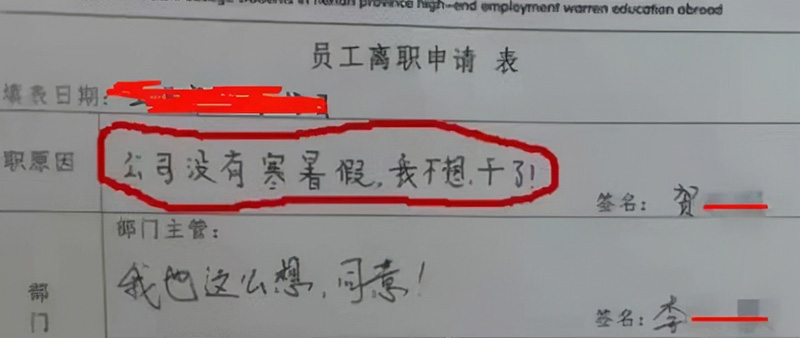 province high-end employment warren education abroad
员工离职申请表
填表日期:
职原因
公司没有寒暑假,我不想干了!
签名: 贺
部门主管:
我也这么想,同意!
部门
签名: 李